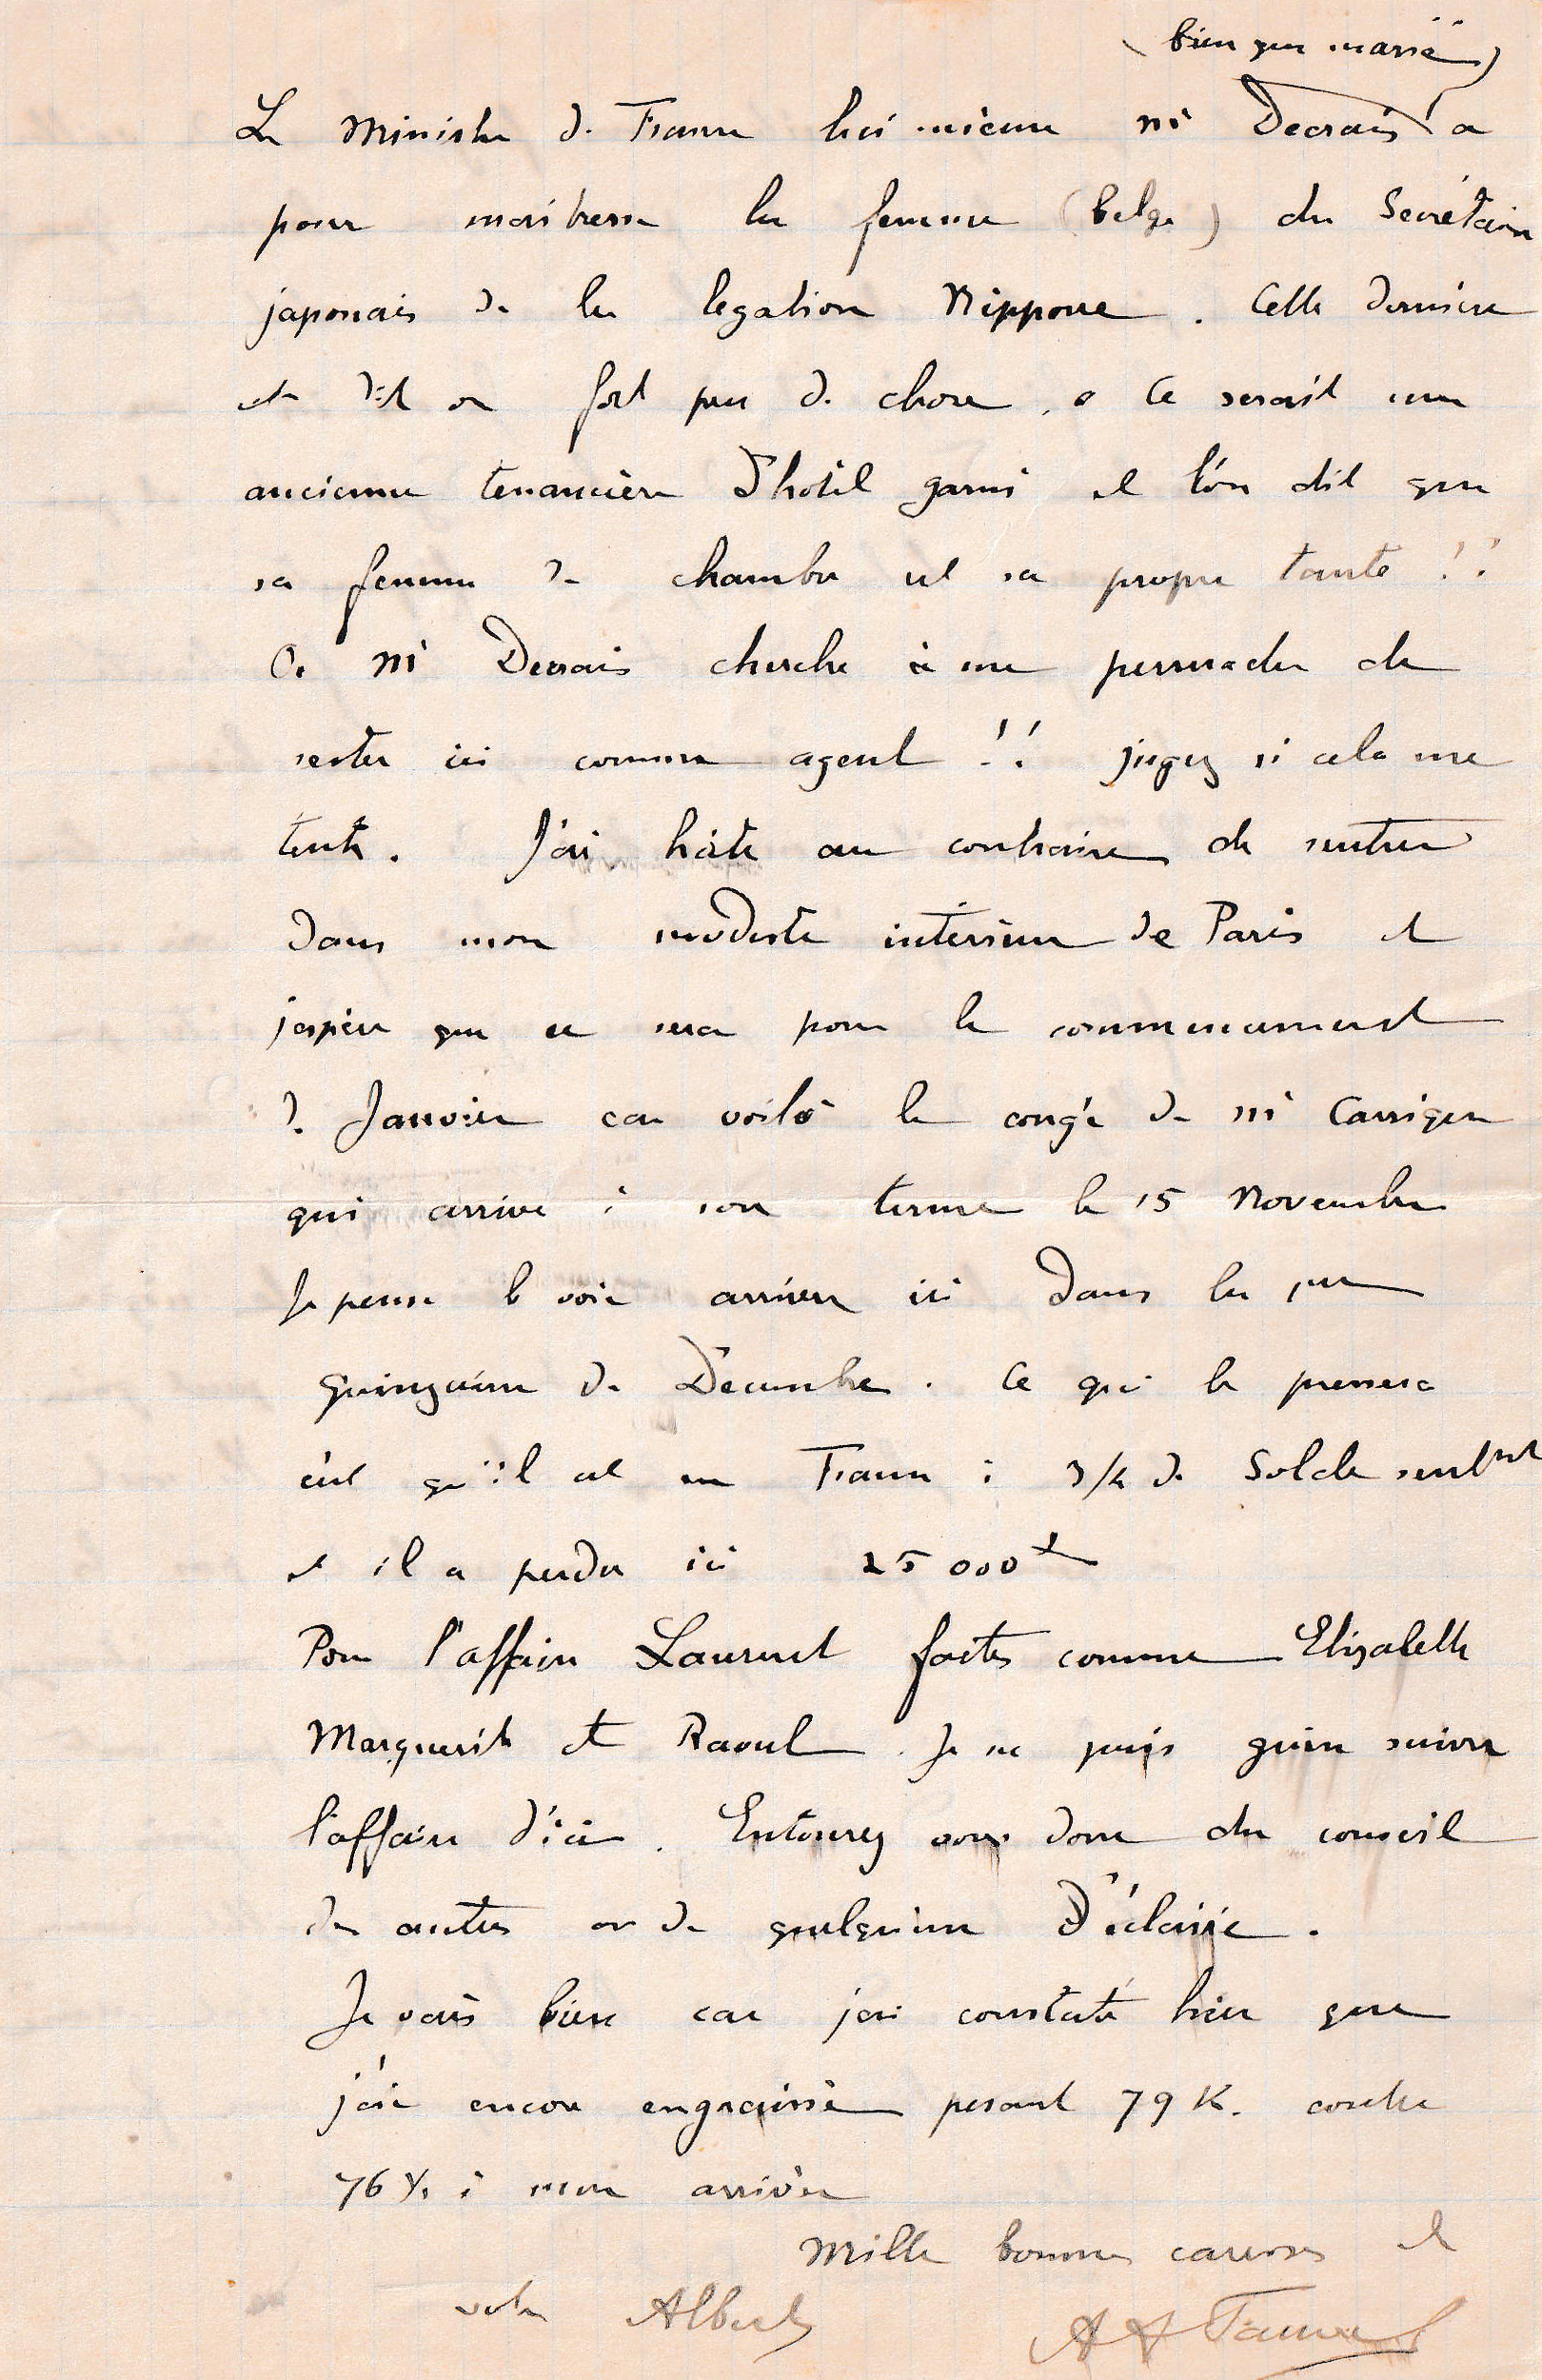 (bien que marié)
Le Ministre de France lui même Mr Decrais a
pour maitresse la femme (belge) du Secrétaire
japonais de la legation Nippone. Cette dernière
est dit on fort peu de chose, ce serait une
ancienne tenancière d'hotel garni et l'on dit que
sa femme de chambre est sa propre tante !!
Ce Mr Decrais cherche à me persuader de
rester ici comme agent !! jugez si cela me
tente. J'ai hâte au contraire de rentrer
dans mon modeste intérieur de Paris et
j'espère que ce sera pour le commencement
de Janvier car voilà le congé de Mr Carrigan
qui arrive à son terme le 15 Novembre
Je pense le voir arriver ici dans la 1ère
quinzaine de Décembre. Ce qui le pressera
c'est qu'il est en France à 3/4 de Solde seulmt
et il a perdu ici 25000 f
Pour l'affaire Laurent faites comme Elizabeth
Marguerite et Raoul. Je ne puis guère suivre
l'affaire d'ici. Entourez vous donc du conseil
des autres ou de quelqu'un d'éclairé.
Je vais bien car j'ai constaté hier que
j'ai encore engraissé pesant 79 K. contre
76 ½ à mon arrivée
Mille bonnes caresses et
votre Albert